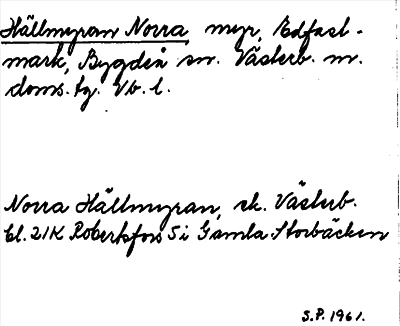 Hällmyran Norra, myr, Edfast-
mark, Bygdeå sn. Västerb. m.
doms. tg. Vb. l.
Norra Hällmyran, ek. Västerb.
bl. 21K Robertsfors 5 i Gamla Storbäcken
S.P. 1961.